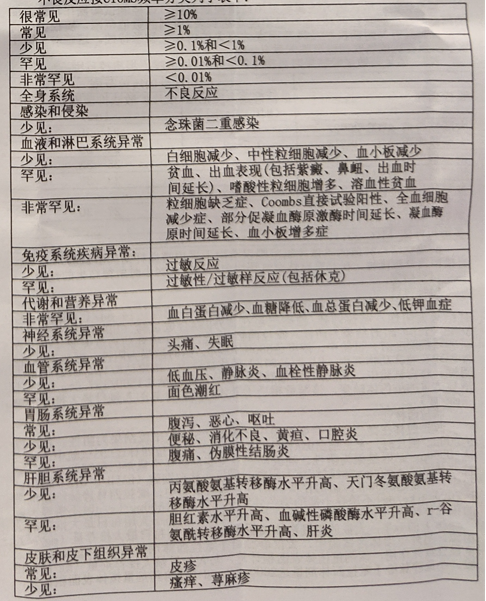 很常见 ≥10%
常见 ≥1%
少见 ≥0.1%和<1%
罕见 ≥0.01%和<0.1%
非常罕见 <0.01%
全身系统 不良反应
感染和侵染
少见: 念珠菌二重感染
血液和淋巴系统异常
少见: 白细胞减少、中性粒细胞减少、血小板减少
罕见: 贫血、出血表现(包括紫癜、鼻衄、出血时
间延长)、嗜酸性粒细胞增多、溶血性贫血
非常罕见: 粒细胞缺乏症、Coombs直接试验阳性、全血细胞
减少症、部分促凝血酶原激酶时间延长、凝血酶
原时间延长、血小板增多症
免疫系统疾病异常:
少见: 过敏反应
罕见: 过敏性/过敏样反应(包括休克)
代谢和营养异常
非常罕见: 血白蛋白减少、血糖降低、血总蛋白减少、低钾血症
神经系统异常
少见: 头痛、失眠
血管系统异常
少见: 低血压、静脉炎、血栓性静脉炎
罕见: 面色潮红
胃肠系统异常
常见: 腹泻、恶心、呕吐
少见: 便秘、消化不良、黄疸、口腔炎
罕见: 腹痛、伪膜性结肠炎
肝胆系统异常
少见: 丙氨酸氨基转移酶水平升高、天门冬氨酸氨基转
移酶水平升高
罕见: 胆红素水平升高、血碱性磷酸酶水平升高、r-谷
氨酰转移酶水平升高、肝炎
皮肤和皮下组织异常
常见: 皮疹
少见: 瘙痒、荨麻疹